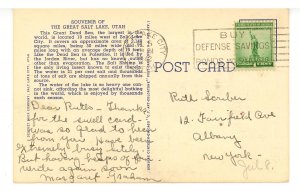 SOUVENIR OF
THE GREAT SALT LAKE, UTAH
This Great Dead Sea, the largest in the
world, is located 15 miles west of Salt Lake
City. It covers an approximate area of
square miles, being 50 miles wide and 75
miles long with an average depth of 15 feet.
Like the Dead Sea in Palestine, it is fed by
the Jordan River, but has no known outlet
other than evaporation. The Salt Shrimp is
the only living insect known to exist therein.
The water is 22 per cent salt and thousands
of tons of salt are shipped annually from its
source.
The water of the lake is so heavy one can-
not sink, affording the most delightful bathing
in the world, which is enjoyed by thousands
each season.
BUY
DEFENSE SAVINGS
POST CARD
Dear Ruth – Thanks
for the swell card.
was so glad to hear
from you. Have been
extremely busy lately.
But having heaps of fun.
Write again soon
Margaret
Ruth Scriber
12 Fairfield Ave
Albany
New York